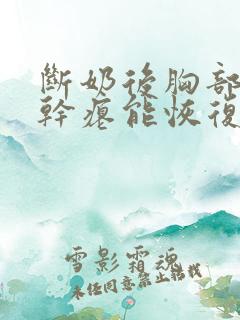 斷奶後胸部
幹瘪能恢復
雪影霜魂
未经同意禁止转载